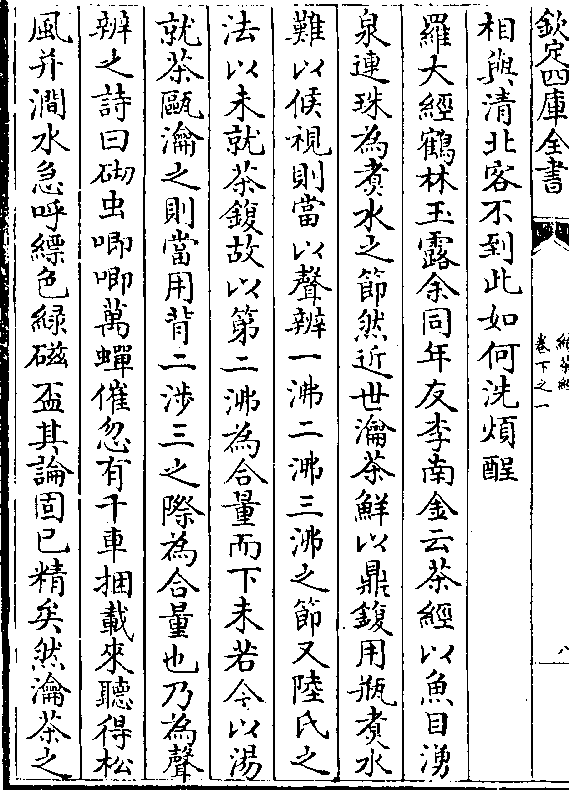 欽定四庫全書
續茶經
卷下之一
八
相與清北客不到此如何洗煩酲
羅大經鶴林玉露余同年友李南金云茶經以魚目湧
泉連珠為煑水之節然近世瀹茶鮮以鼎鍑用瓶煑水
難以候視則當以聲辨一沸二沸三沸之節又陸氏之
法以未就茶鍑故以第二沸為合量而下未若今以湯
就茶甌瀹之則當用背二涉三之際為合量也乃為聲
辨之詩曰砌虫唧唧萬蟬催忽有千車捆載來聽得松
風并澗水急呼縹色緑磁盃其論固已精矣然瀹茶之